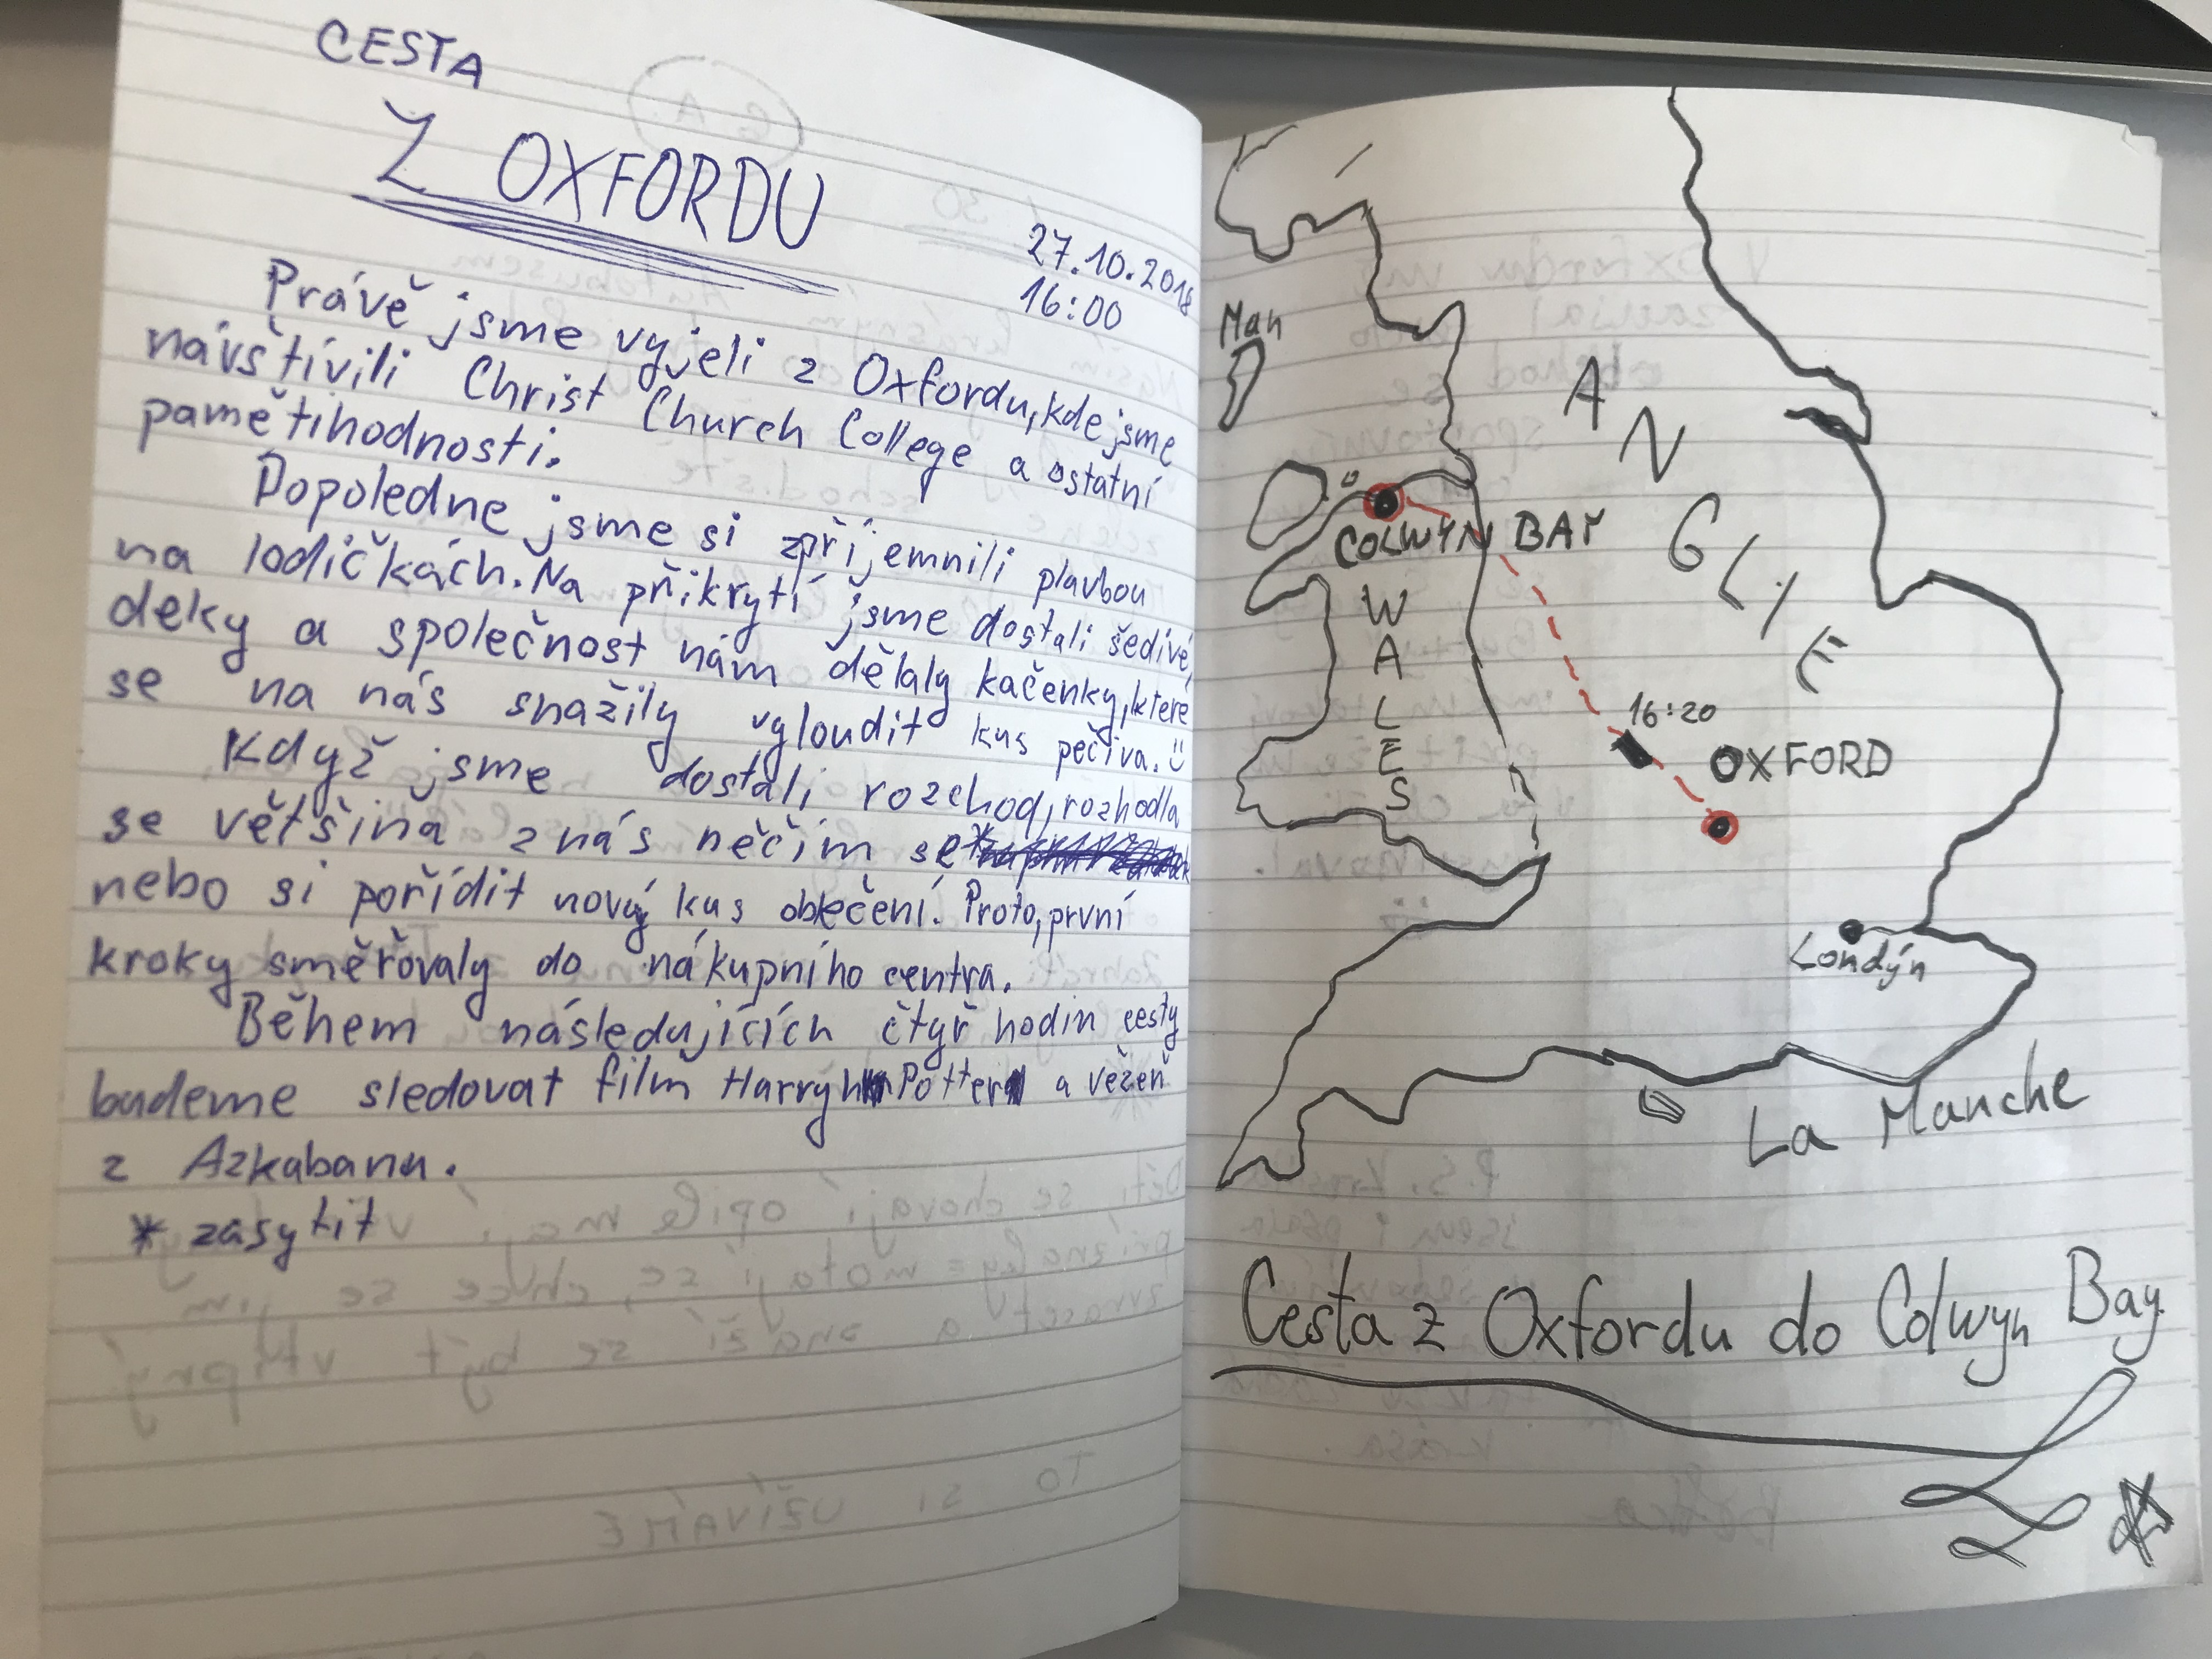 CESTA
Z OXFORDU
27.10.2018
16:00
Právě jsme vyjeli z Oxfordu, kde jsme
návštívili Christ Church College a ostatní
pamětihodnosti.
Dopoledne jsme si zpříjemnili plavbou
na lodičkách. Na přikrytí jsme dostali šedivé
deky a společnost nám dělaly kačenky, které
se na nás snažily vyloudit kus pečiva.
Když jsme dostali rozchod, rozhodla
se většina z nás něčím se*
nebo si pořídit nový kus oblečení. Proto, první
kroky směřovaly do nákupního centra.
Během následujících čtyř hodin cesty
budeme sledovat film Harry Potter a vězeň
z Azkabanu.
* zasytit
Man
ANGLIE
COLWYN BAY
WALES
16:20
OXFORD
Londýn
La Manche
Cesta z Oxfordu do Colwyn Bay